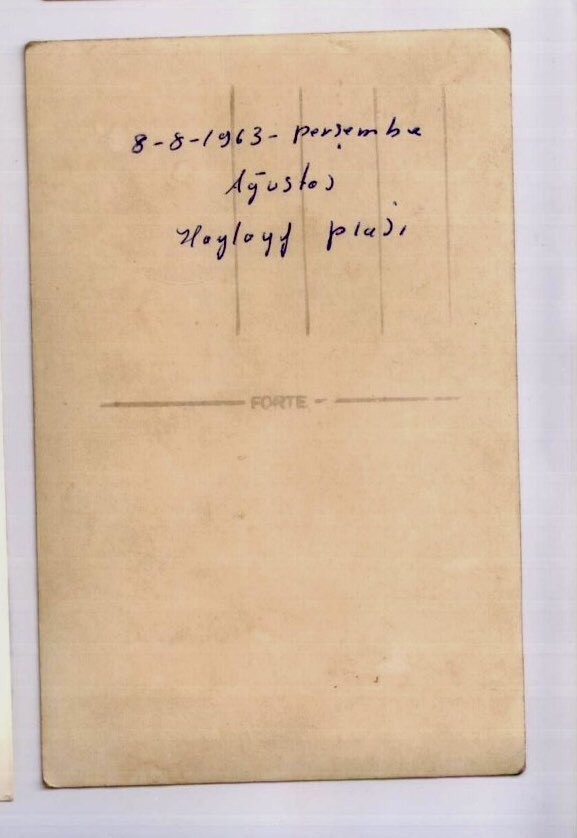 8-8-1963- perşembe
Ağustos
Haylayf plajı
FORTE